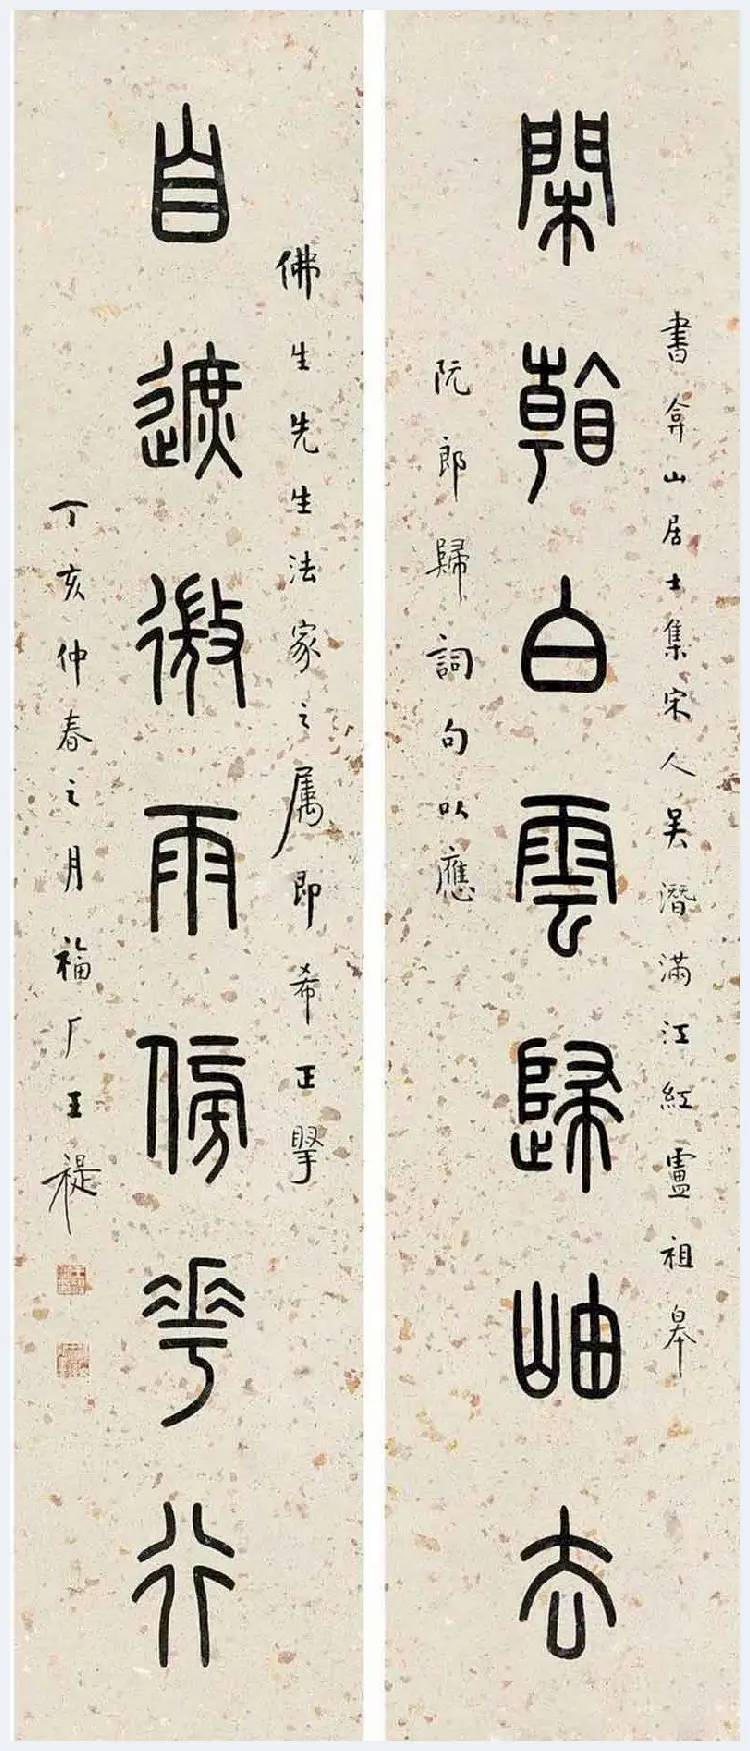 閑看白雲歸岫去
自遮微雨傍花行
書弇山居士集宋人吳潛滿江紅盧祖皋
阮郎歸詞句以應
佛生先生法家之属即希正掔
丁亥仲春之月福厂王禔